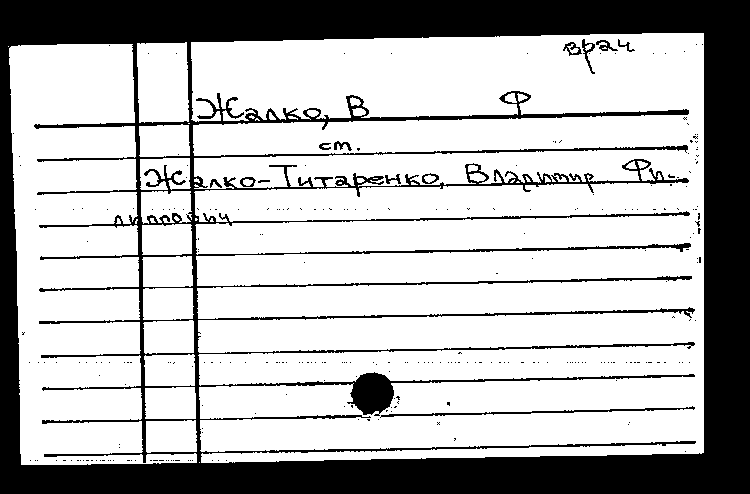 врач
Жалко, В Ф
ст.
Жалко-Титаренко, Владимир Фи-
липпович